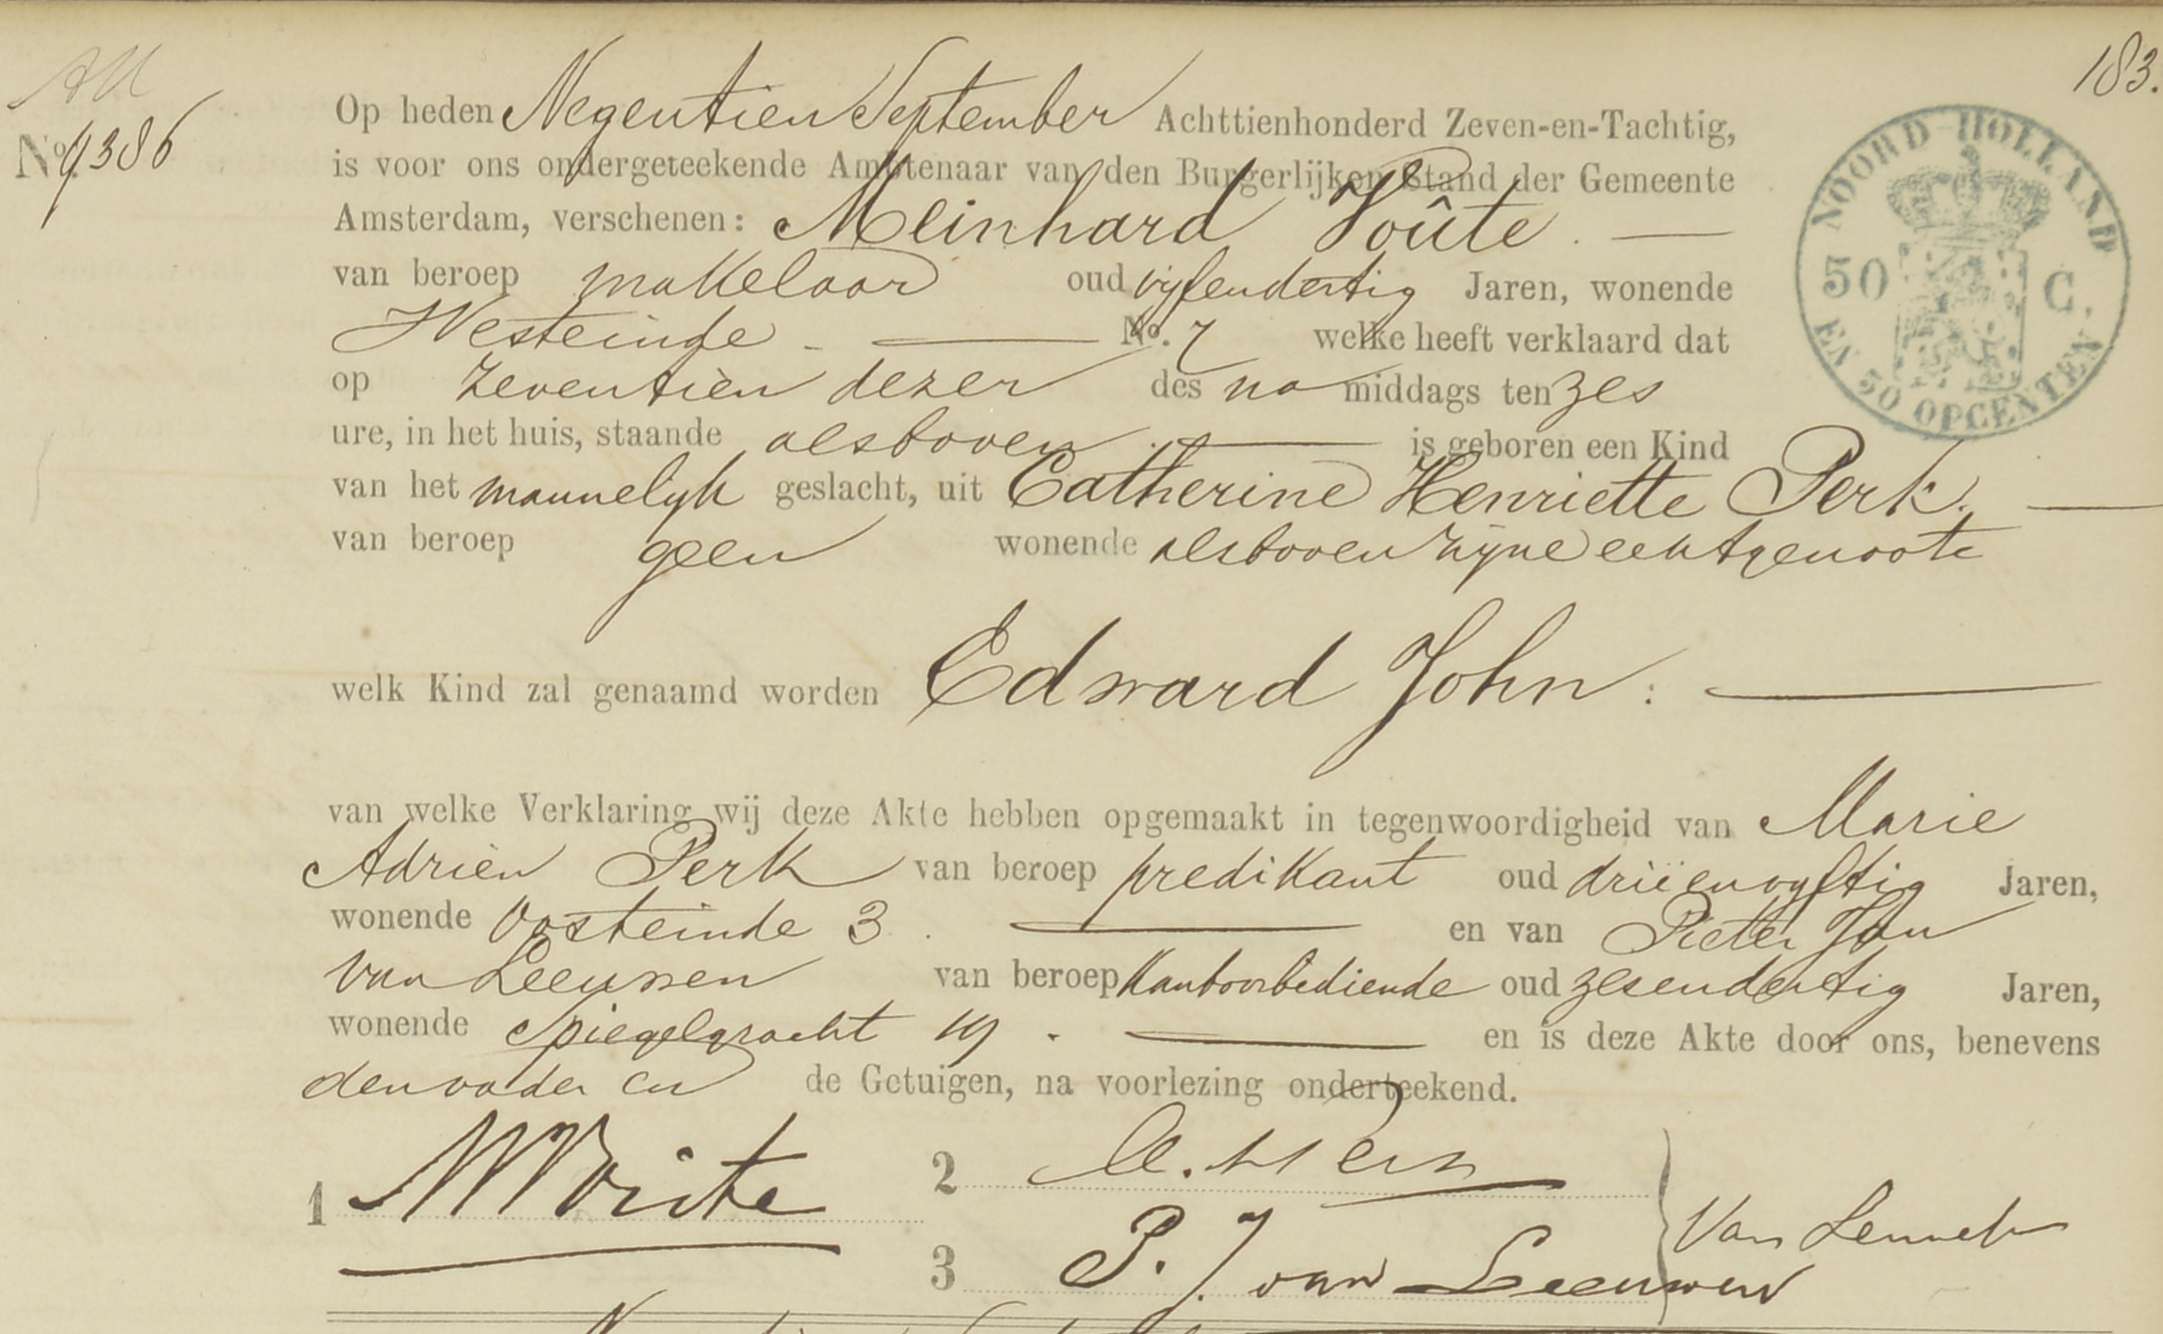 183.
No 9386
Op heden Negentien September Achttienhonderd Zeven-en-Tachtig,
is voor ons ondergeteekende Ambtenaar van den Burgerlijken Stand der Gemeente
Amsterdam, verschenen: Meinhard Voûte
van beroep makelaar oud vijfendertig Jaren, wonende
Westeinde No. 7 welke heeft verklaard dat
op zeventien dezer des na middags ten zes
ure, in het huis, staande alsboven is geboren een Kind
van het mannelyk geslacht, uit Catherine Henriette Perk.
van beroep geen wonende alsboven zijne echtgenoote
welk Kind zal genaamd worden Edward John:
van welke Verklaring wij deze Akte hebben opgemaakt in tegenwoordigheid van Marie
Adrien Perk van beroep predikant oud drieenvyftig Jaren,
wonende Oosteinde 3. en van Pieter Jan
van Leeuwen van beroep Kantoorbediende oud zesendertig Jaren,
wonende Spiegelgracht 19. en is deze Akte door ons, benevens
den vader en de Getuigen, na voorlezing onderteekend.
1 MVoûte 2 Perk
3 P. J. van Leeuwen Van Lennep
NOORD HOLLAND
50 C.
EN 50 OPCENTEN